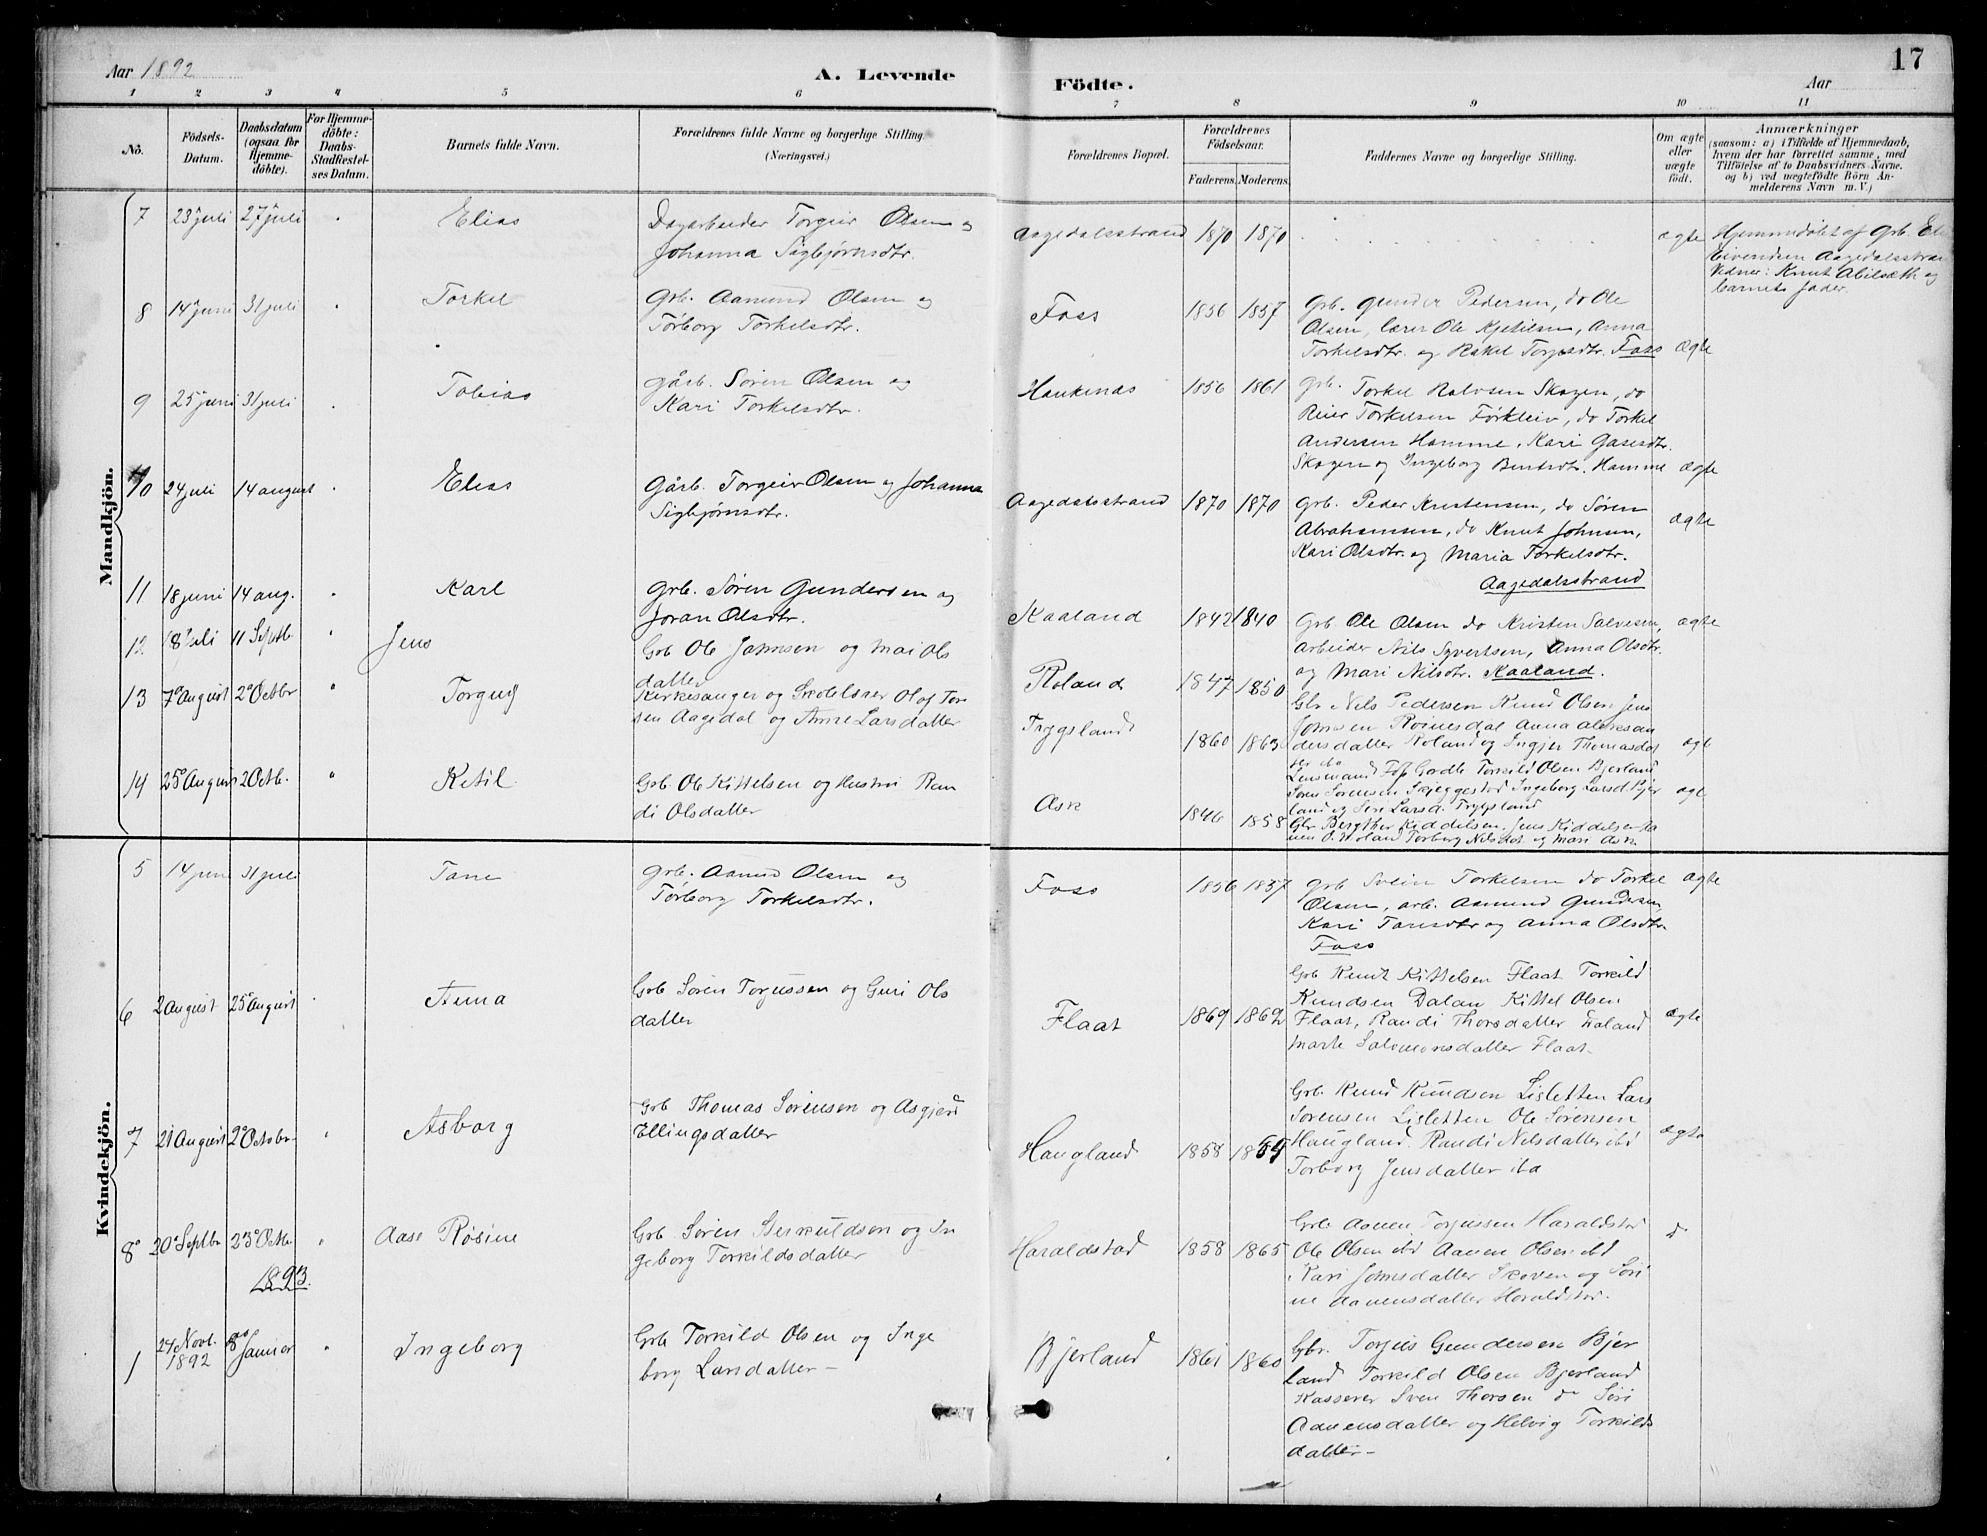 Aar 1892
A. Levende
Födte.
Aar
17
1 2 3 4 5 6 7 8 9 10 11
No.
Födsels-Datum.
Daabsdatum (ogsaa for Hjemme-döbte).
For Hjemme-döbte: Daabs-Stadfæstel-ses Datum.
Barnets fulde Navn.
Forældrenes fulde Navne og borgerlige Stilling.
(Næringsvei.)
Forældrenes Bopæl.
Forældrenes Födselsaar.
Faderens. Moderens.
Faddernes Navne og borgerlige Stilling.
Om ægte eller uægte födt.
Anmærkninger
(saasom: a) i Tilfælde af Hjemmedaab,
hvem der har forrettet samme, med
Tilföielse af to Daabsvidners Navne.
og b) ved uægtefödte Börn An-
melderens Navn m. V.)
Mandkjön.
7 23 juli 27 juli Elias
Dagarbeider Torgeir Olsen og
Johanna Sigbjørnsdtr.
Aagedalsstrand 1870 1870 ægte
Hjemmedøbt af Grb.
Eivendsen Aagedalsstran
Vidner: Knut Abilsæth og
barnets fader.
8 14 juni 31 juli Torkel
Grb. Aamund Olsen og
Tørborg Torkelsdtr.
Foss 1856 1857
Grb. Gunder Pedersen, do Ole
Olsen, lærer Ole Kjetilsen, Anna
Torkelsdtr. og Rakel Torjesdtr. Foss ægte
9 25 juni 31 juli Tobias
Gårb. Søren Olsen og
Kari Torkelsdtr.
Haukenæs 1856 1861
Grb. Torkel Salvesen Skogen, do
Reier Torkelsen Førkleiv, do Torkel
Andersen Homme, Kari Gasesdtr.
Skogen og Ingeborg Berntsdtr. Homme ægte
10 24 juli 14 august Elias
Gårb. Torgeir Olsen og Johanna
Sigbjørnsdtr.
Aagedalsstrand 1870 1870
Grb. Peder Kristensen, do Søren
Abrahamsen, do Knut Johnsen,
Kari Olsdtr. og Maria Torkelsdtr.
Aagedalsstrand
ægte
11 18 juni 14 aug. Karl
Grb. Søren Gundersen og
Joran Olsdtr.
Kaaland 1842 1840
Grb. Ole Olsen do Kristen Salvesen,
arbeider Nils Syvertsen, Anna Olsdtr.
og Mari Nilsdtr. Kaaland.
ægte
12 8 Juli 11 Septb Jens
Grb Ole Jahnsen og Mari Ols
datter
Roland 1847 1850
Gbr Nils Pedersen Knud Olsen Jens
Johnsen Roinesdal Anna Aleksan
dersdatter Roland og Ingjer Thomasdat
13 7de August 2 Octbr Torguf
Kirkesanger og Skolelærer Olaf Tor
sen Aagedal og Anne Larsdatter
Trygsland 1860 1863 ægt
Lensmand Foss Gordle Torkild Olsen Bjerland
Søren Sørensen Skjeggestad Ingeborg Larsd Bjer
land og Siri Larsd. Trygsland
14 25 August 2 Octb. Ketil
Grb. Ole Kittelsen og Hustru Ran
di Olsdatter
Ask 1846 1858 ægt
Gbr Bergthor Kiddelsen. Jens Kiddelsen
Torborg Nilsdat og Mari Ask.
Kvindekjön.
5 14 juni 31 juli Tone
Grb. Aamund Olsen og
Tørborg Torkelsdtr.
Foss 1856 1857
Grb Svein Torkelsen do Torkel
Olsen, arb. Aamund Gundersen,
Kari Toresdtr og Anna Olsdtr.
Foss
ægte
6 2 August 25 August Anna
Grb Søren Torjussen og Guri Ols
datter
Flaat 1869 1862
Grb Knut Kittelsen Flaat Torkild
Knudsen Dalan Kittel Olsen
Flaat, Randi Thorsdatter
Marte Salomonsdatter Flaat.
ægte
7 21 August 2 Octobr Asborg
Grb Thomas Sørensen og Asgjerd
Ellingsdatter
Haugland 1858
Grb. Knud Knudsen Lisletten Lars
Sørensen Lisletten Ole Sørensen
Haugland. Randi Nilsdatter ibd
Torborg Jensdatter ibd
ægte
8 20 Septbr 23 Octb. Aase Rosine
Grb Søren Sterkuldsen og In
geborg Torkildsdatter
Haraldstad 1858 1865
Grb Aanen Torjussen Haraldstad
Ole Olsen ibd Aanen Olsen ibd
Kari Johnsdatter Skoven og Siri
ne Aanensdatter Haraldstad.
d
1893.
1 24 Novb. 1892 8 Januar Ingeborg
Grb Torkild Olsen og Inge
borg Larsdatter –
Bjerland 1861 1860
Gbr. Torjus Gundersen Bjer
land Torkild Olsen Bjerland
Kasserer Sven Thorsen do Siri
Aanensdatter og Helvig Torkilds
datter –